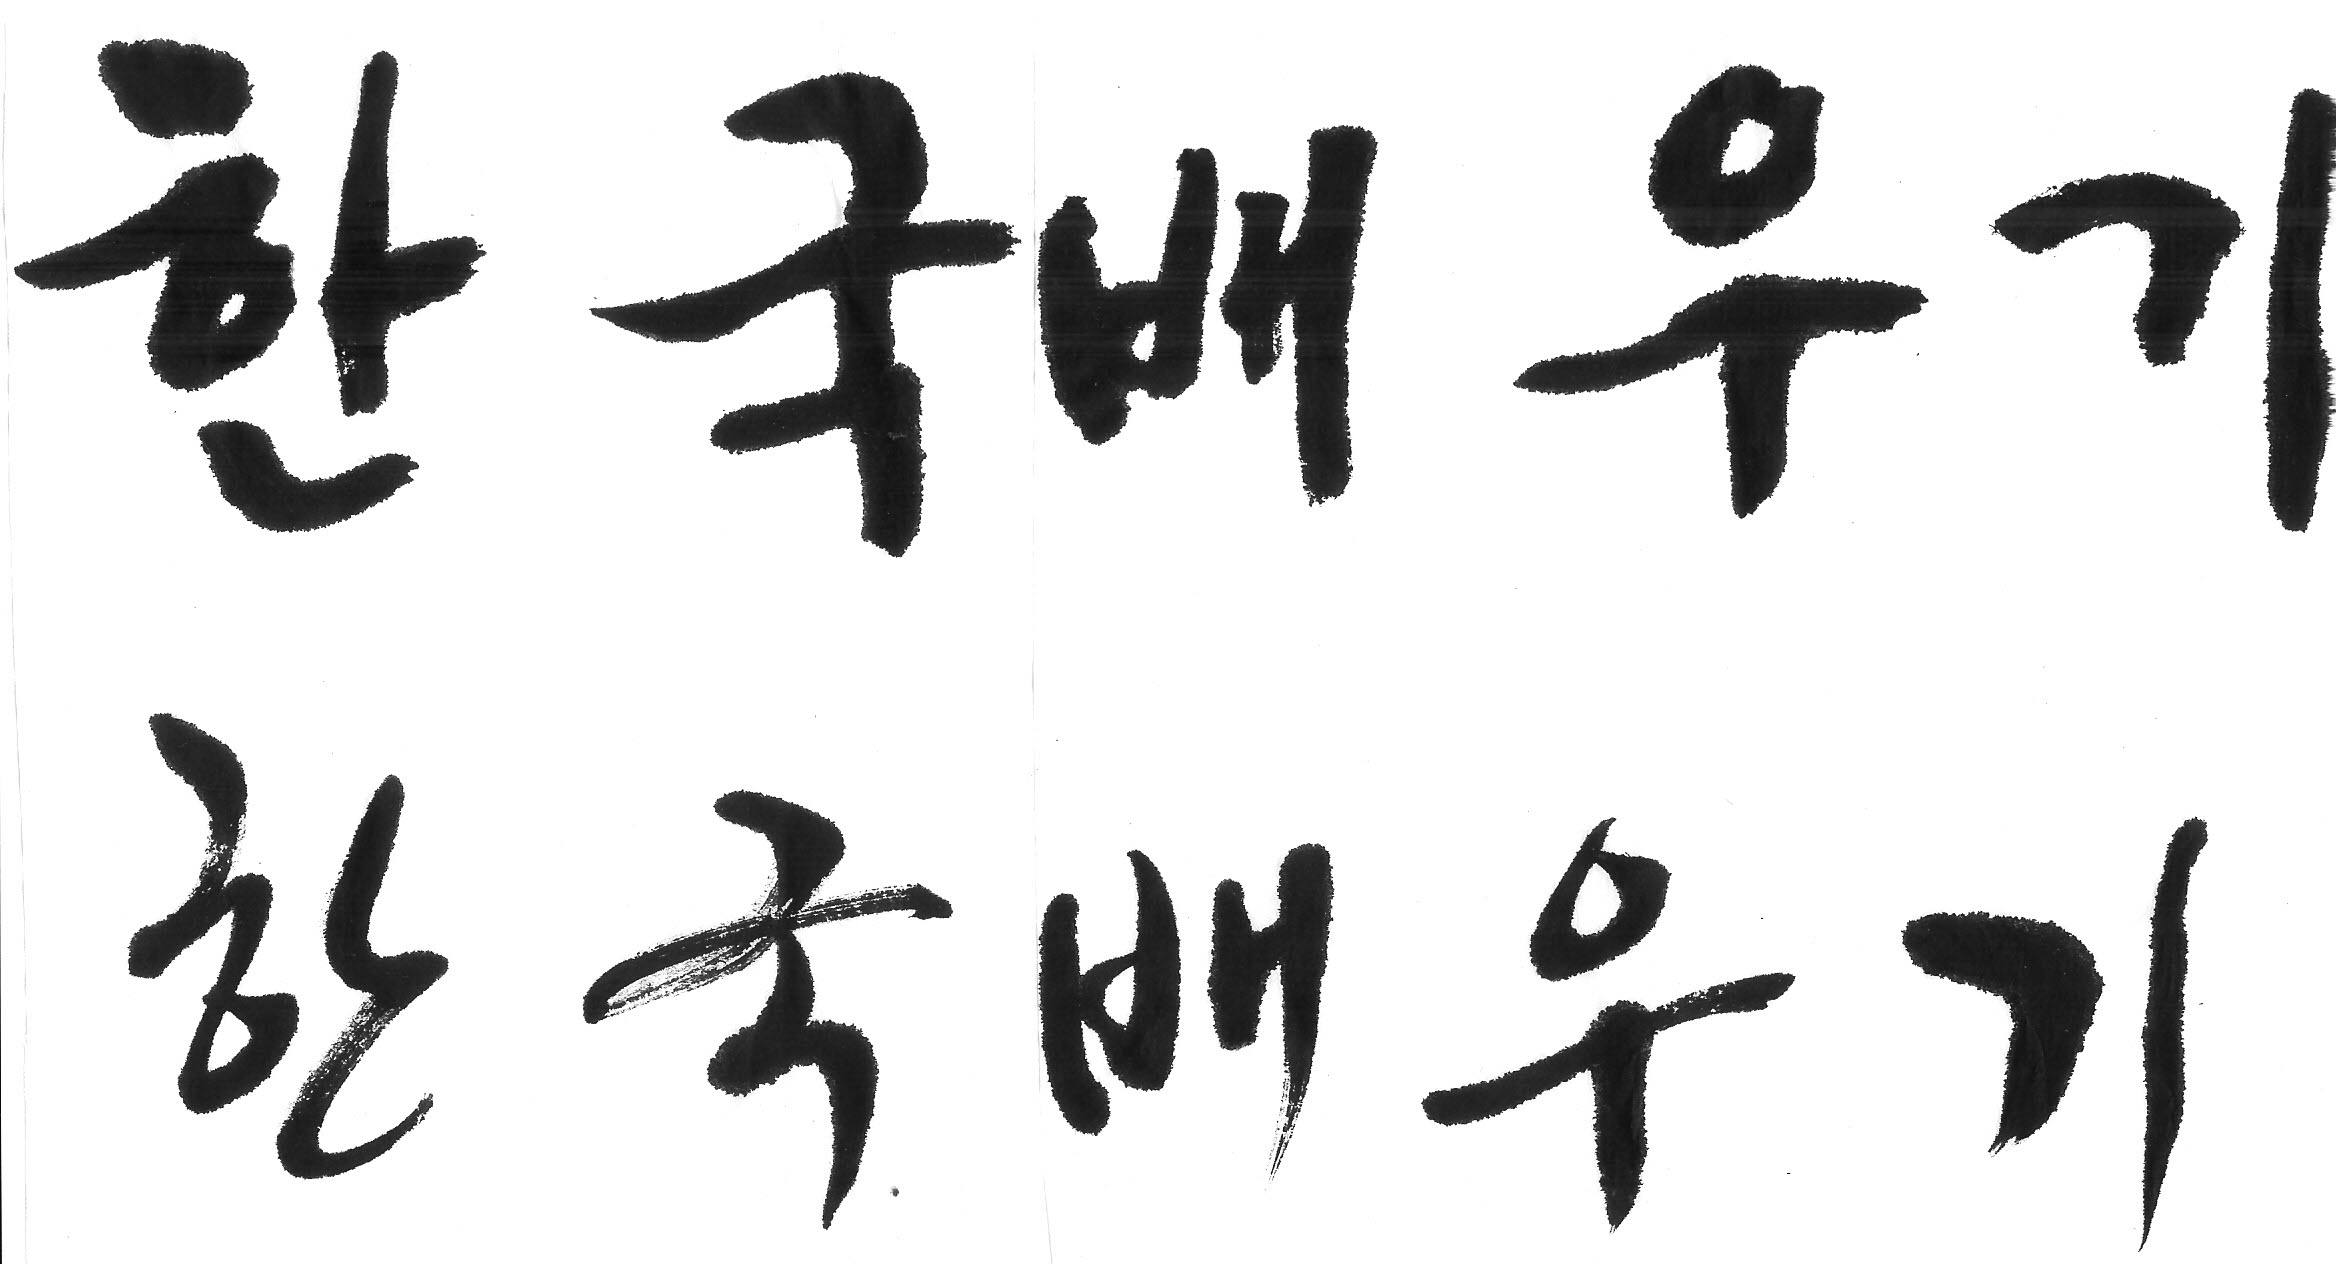 한국배우기
한국배우기